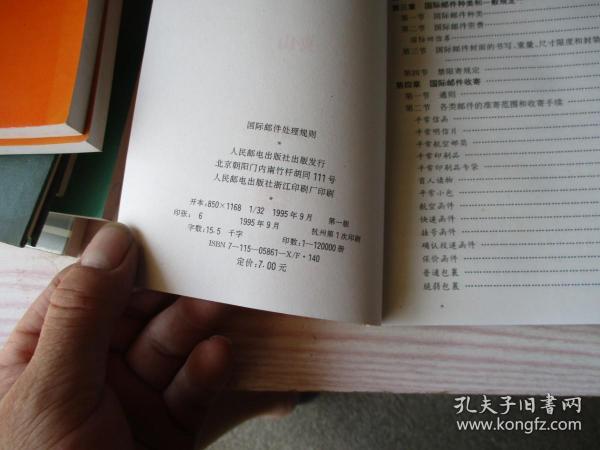 国际邮件处理规则
人民邮电出版社出版发行
北京朝阳门内南竹杆胡同111号
人民邮电出版社浙江印刷厂印刷
开本:850×1168 1/32 1995年9月 第一版
印张: 6 1995年9月 杭州第1次印刷
字数:15.5 千字 印数:1—120000册
ISBN 7—115—05861—X/F·140
定价:7.00 元
第三章 国际邮件种类和一般规定
第一节 国际邮件种类
第二节 国际邮件资费
国际回信券
第三节 国际邮件封面的书写、重量、尺寸限度和封装
第四节 禁限寄规定
第四章 国际邮件收寄
第一节 通则
第二节 各类邮件的准寄范围和收寄手续
平常信函
平常明信片
平常航空邮简
平常印刷品
平常印刷品专袋
盲人读物
平常小包
航空函件
快递函件
挂号函件
确认投递函件
保价函件
普通包裹
脆弱包裹
孔夫子旧书网
www.kongfz.com